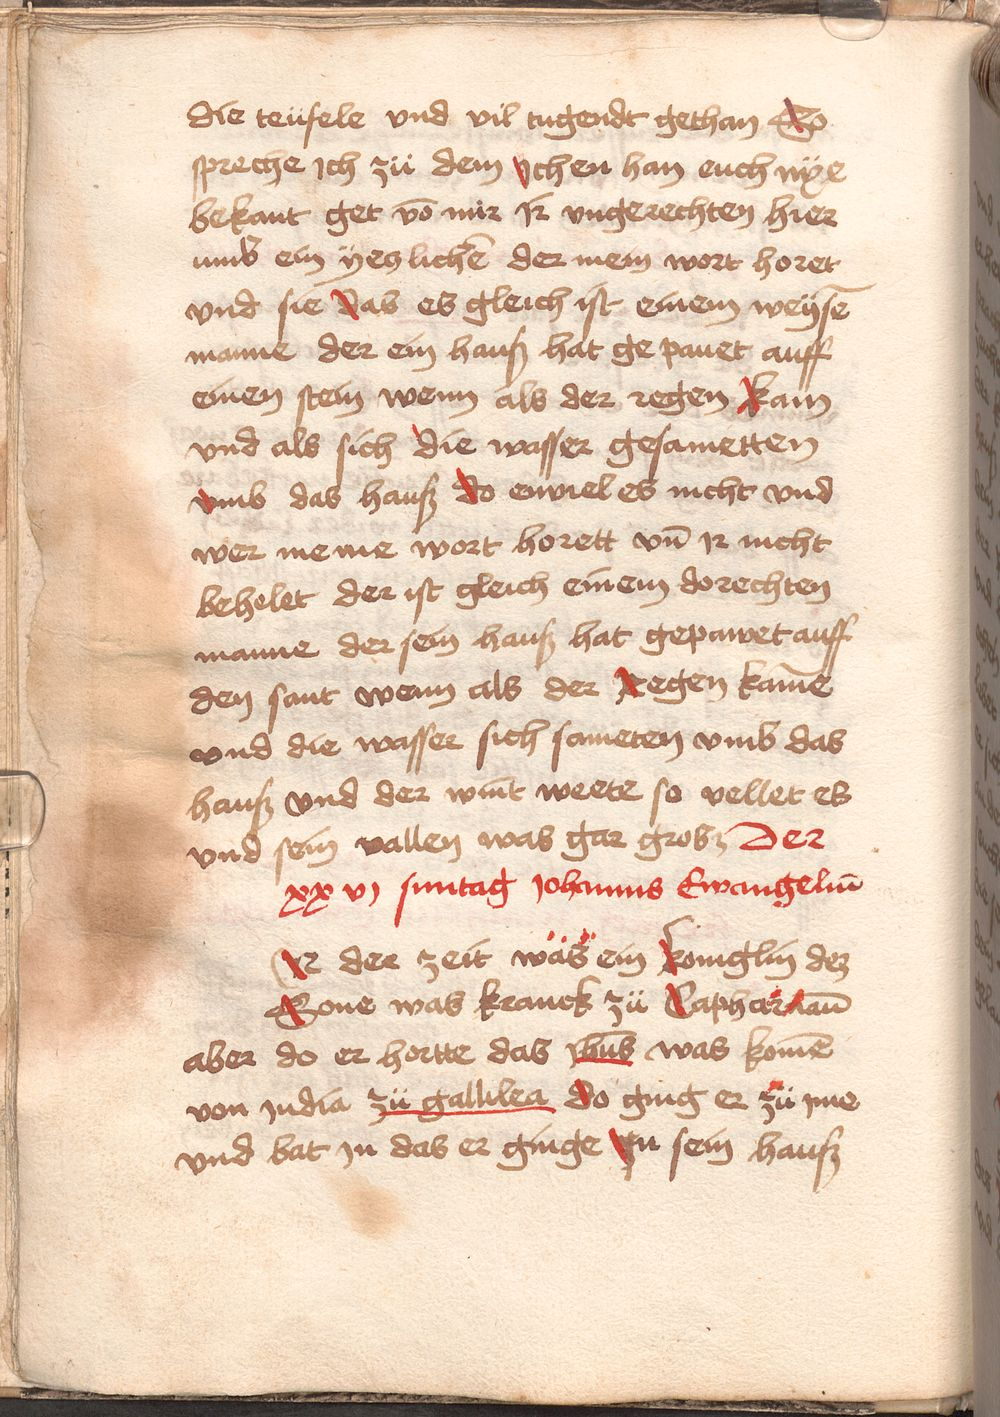 die teüfele vnd vil tugendt gethan So
spreche ich zü dem ichen han euch nÿe
bekant get vō mir ir vngerechten hier
vmb ein yeglichē der mein wort horet
vnd sie das es gleich ist einem weÿsē
manne der ein hauß hat ge pauet auff
einen stein wenn als der regen kam
vnd als sich die wasser gesametten
vmb das hauß do enviel es nicht vnd
wer meine wort horett vn̄ ir nicht
behelet der ist gleich einem dorechten
manne der sein hauß hat gepawet auff
den sant wenn als der regen kam̄e
vnd die wasser sich sameten vmb das
hauß vnd der win̄t weete so vellet es
vnd sein vallen was gar grosz Der
xx vj suntag Johannis Ewangeliū
Ir der zeit was ein koniglin dez
Sone was kranck zü Capharnaū
aber do er hortte das ihūs was kom̄e
von judia zü gallilea do ging er zü ime
vnd bat in das er ginge in sein hauß